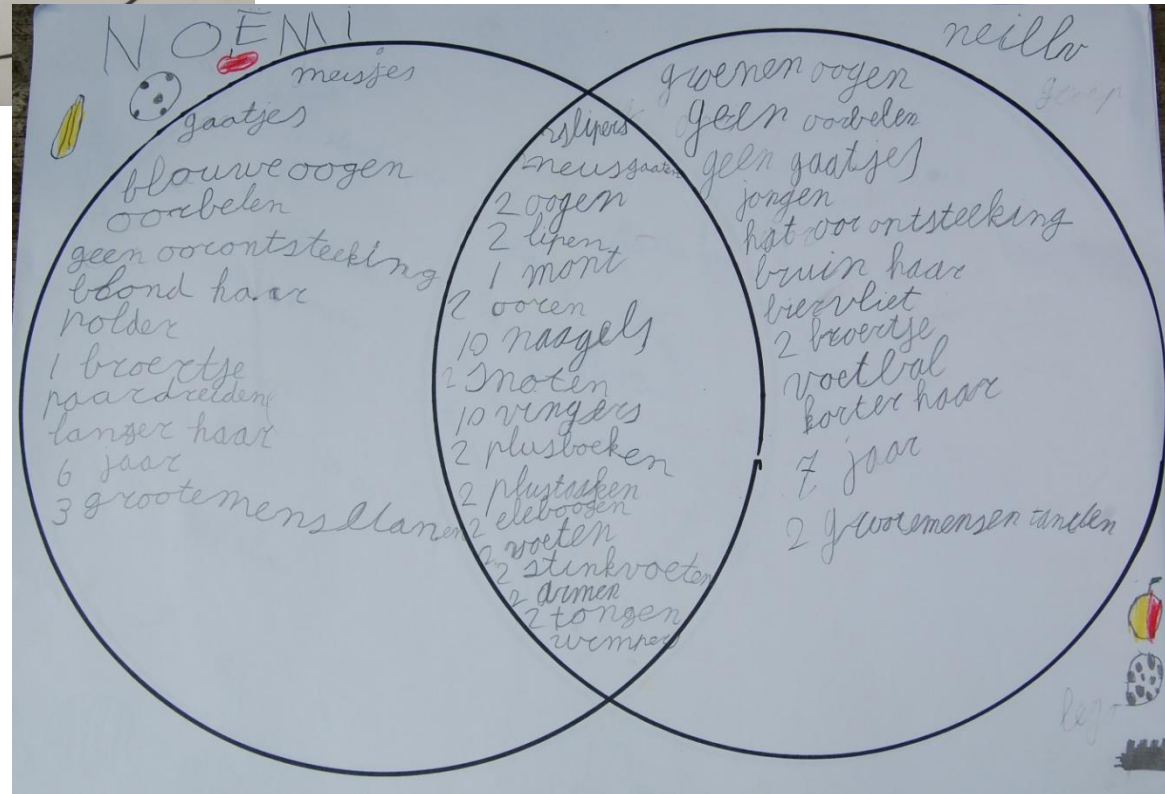 NOËMI
meisjes
gaatjes
blouwe oogen
oorbelen
geen oorontsteeking
blond haar
polder
1 broertje
paardreiden
langer haar
6 jaar
3 grootemens
slipers
2 neusgaaten
2 oogen
2 lipen
1 mont
2 ooren
10 naagels
2 snoten
10 vingers
2 plusboeken
2 plustasken
2 eleboogen
2 voeten
2 stinkvoeten
2 armen
2 tongen
wimpers
groenen oogen
geen oorbelen
geen gaatjes
jongen
hat oor ontsteeking
bruin haar
biervliet
2 broertje
voetbal
korter haar
7 jaar
2 tanden
lego